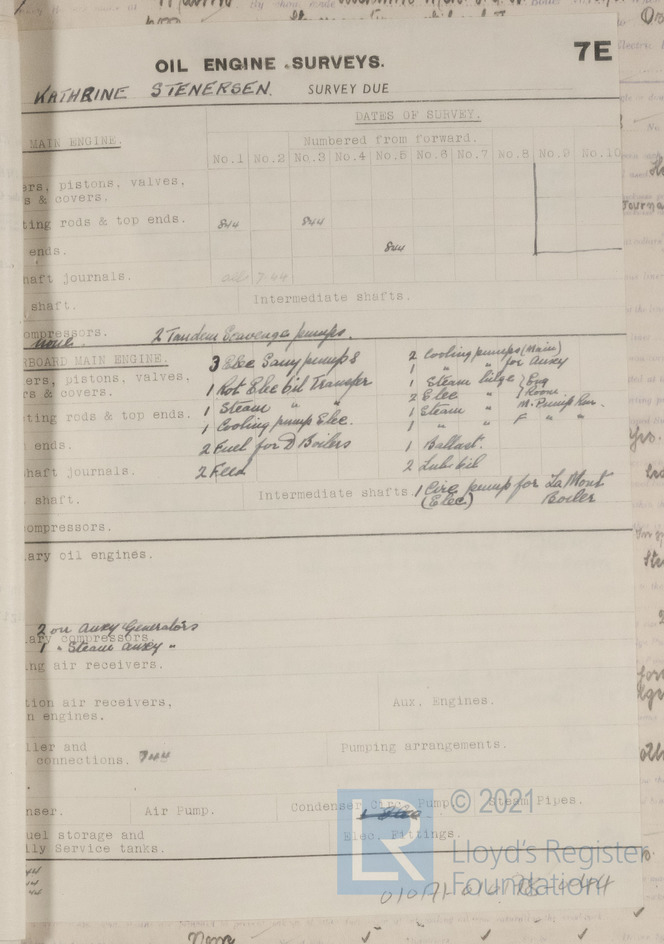 7E
OIL ENGINE SURVEYS.
KATHRINE STENERSEN. SURVEY DUE
DATES OF SURVEY.
MAIN ENGINE. Numbered from forward.
No.1 No.2 No.3 No.4 No.5 No.6 No.7 No.8 No.9 No.10
ers, pistons, valves,
s & covers.
ting rods & top ends. 844 844
ends. 844
haft journals. 7.44
shaft. Intermediate shafts.
ompressors.
none 2 Tandem Scavenge pumps.
RBOARD MAIN ENGINE. 3 Elec Sany pumps 2 Cooling pumps (Main)
1 " " for Auxy
ers, pistons, valves, 1 Rot Elec oil Transfer 1 Steam bilge } Eng
rs & covers. 2 Elec " } Room
ting rods & top ends. 1 Steam " " 1 Steam " M. Pump Rm.
1 Cooling pump Elec. 1 " " F " "
ends. 2 Fuel for D Boilers 1 Ballast.
haft journals. 2 Feed 2 Lub. oil
shaft. Intermediate shafts 1 Circ pump for La Mont
(Elec) Boiler
ompressors.
ary oil engines.
2 on Auxy Generators
ary compressors.
1 " Steam auxy "
ng air receivers.
tion air receivers, Aux. Engines.
n engines.
ler and Pumping arrangements.
connections. 744
nser. Air Pump. Condenser Circ. Pump. Steam Pipes.
uel storage and Elec. Fittings.
ily Service tanks.
44
44
44
© 2021
Lloyd's Register
Foundation